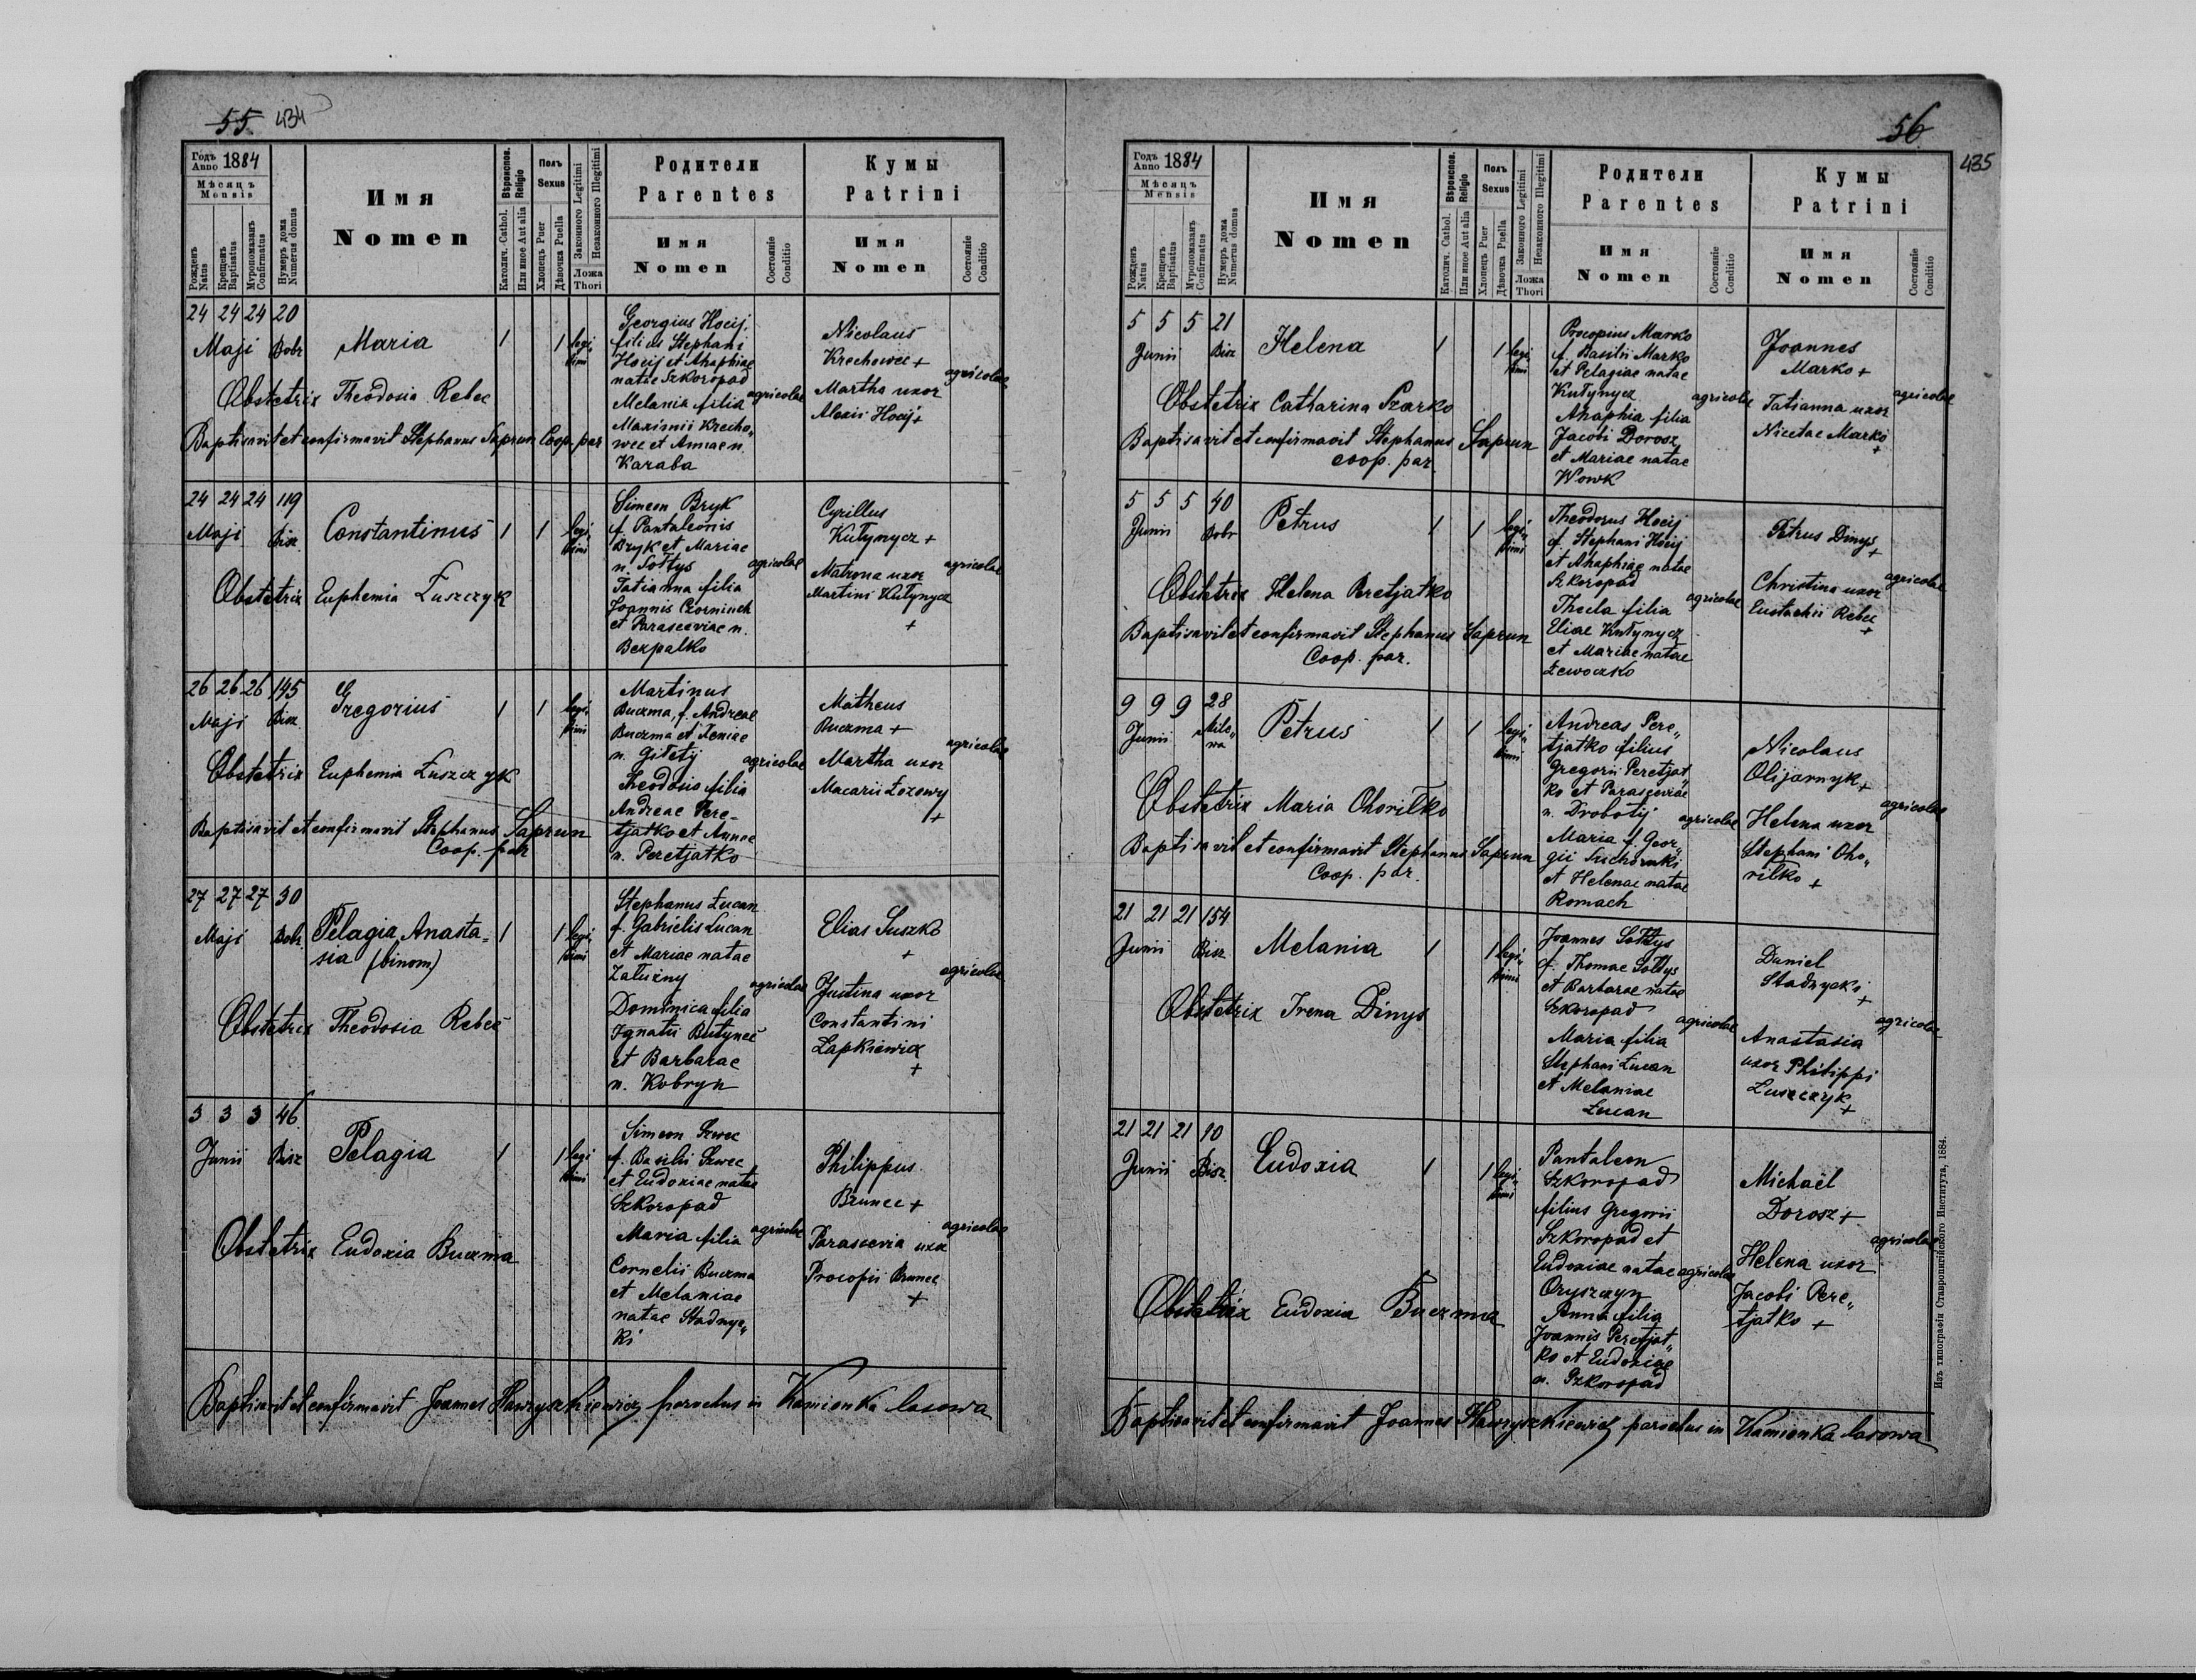 55. 434
Годъ Anno 1884
Мѣсяцъ Mensis
Рожденъ Natus
Крещенъ Baptisatus
Мѵропомазанъ Confirmatus
Нумеръ дома Numerus domus
Имя Nomen
Вѣроиспов. Religio
Католич. Cathol.
Или иное Aut alia
Полъ Sexus
Хлопецъ Puer
Дѣвочка Puella
Законного Legitimi
Незаконного Illegitimi
Ложа Thori
Родители Parentes
Имя Nomen
Состояніе Conditio
Кумы Patrini
Имя Nomen
Состояніе Conditio
24 24 24 20
Maji Bobr
Maria
1 1 legitimi
Georgius Hocij
filius Stephani
Hocij et Ahaphiae
natae Szkoropad
Melania filia
Maximii Krecho„
wec et Annae n.
Karaba
agricolae
Nicolaus
Krechowec +
Martha uxor
Alexii Hocij +
agricolae
Obstetrix Theodosia Rebec
Baptisavit et confirmavit Stephanus Saprun Coop. par
24 24 24 119
Maji Bisz
Constantinus
1 1 legitimi
Simeon Bryk
f. Pantaleonis
Bryk et Mariae
n. Sołtys
Tatianna filia
Joannis Czorninch
et Parasceviae n.
Bezpalko
agricolae
Cyrillus
Kutynycz +
Matrona uxor
Martini Kutynycz
+
agricolae
Obstetrix Euphemia Łuszczyk
26 26 26 145
Maji Bisz
Gregorius
1 1 legitimi
Martinus
Buczma, f. Andreae
Buczma et Xeniae
n. Giletij
Theodosia filia
Andreae Pere-
tjatko et Annae
n. Peretjatko
agricolae
Matheus
Buczma +
Martha uxor
Macarii Łozowy
+
agricolae
Obstetrix Euphemia Łuszczyk
Baptisavit et confirmavit Stephanus Saprun
Coop. par
27 27 27 30
Maji Bobr
Pelagia, Anasta=
sia (binom)
1 1 legitimi
Stephanus Łucan
f. Gabrielis Łucan
et Mariae natae
Załużny
Dominica filia
Ignatii Butynec
et Barbarae
n. Kobryn
agricolae
Elias Suszko
+
Justina uxor
Constantini
Lapkiewicz
+
agricolae
Obstetrix Theodosia Rebec
3 3 3 46
Junii Bisz
Pelagia
1 1 legitimi
Simeon Szwec
f. Basilii Szwec
et Eudoxiae natae
Szkoropad
Maria filia
Cornelii Buczma
et Melaniae
natae Stadnyc„
ki
agricolae
Philippus
Brunec +
Parascevia uxor
Procopii Brunec
+
agricolae
Obstetrix Eudoxia Buczma
Baptisavit et confirmavit Joannes Hawryszkiewicz parochus in Kamionka lasowa
56
435
Годъ Anno 1884
Мѣсяцъ Mensis
Рожденъ Natus
Крещенъ Baptisatus
Мѵропомазанъ Confirmatus
Нумеръ дома Numerus domus
Имя Nomen
Вѣроиспов. Religio
Католич. Cathol.
Или иное Aut alia
Полъ Sexus
Хлопецъ Puer
Дѣвочка Puella
Законного Legitimi
Незаконного Illegittimi
Ложа Thori
Родители Parentes
Имя Nomen
Состояніе Conditio
Кумы Patrini
Имя Nomen
Состояніе Conditio
5 5 5 21
Junii Bisz
Helena
1 1 legitimi
Procopius Marko
f. Basilii Marko
et Pelagiae natae
Kutynycz
Ahaphia filia
Jacobi Dorosz
et Mariae natae
Wowk
agricolae
Joannes
Marko +
Tatianna uxor
Nicetae Marko
+
agricolae
Obstetrix Catharina Szarko
Baptisavit et confirmavit Stephanus Saprun
coop. par.
5 5 5 40
Junii Bobr
Petrus
1 1 legitimi
Theodorus Hocij
f. Stephani Hocij
et Ahaphiae natae
Szkoropad
Thecla filia
Eliae Kutynycz
et Mariae natae
Łewoczko
agricolae
Petrus Dinys
+
Christina uxor
Eustachii Rebec
+
agricolae
Obstetrix Helena Peretjatko
Baptisavit et confirmavit Stephanus Saprun
Coop. par.
9 9 9 28
Junii Mile„
wa
Petrus
1 1 legitimi
Andreas Pere„
tjatko filius
Gregorii Peretjat„
ko et Parasceviae
n. Drobotij
Maria f. Geor„
gii
et Helenae natae
Romach
agricolae
Nicolaus
Olijarnyk +
Helena uxor
Stephani Oho„
rilko +
agricolae
Obstetrix Maria Ohorilko
Baptisavit et confirmavit Stephanus Saprun
Coop. par.
21 21 21 154
Junii Bisz
Melania
1 1 legitimi
Joannes Sołtys
f. Thomae Sołtys
et Barbarae natae
Szkoropad
Maria filia
Stephani Łucan
et Melaniae
Łucan
agricolae
Daniel
Stadnycki
+
Anastasia
uxor Philippi
Łuszczyk
+
agricolae
Obstetrix Irena Dinys
21 21 21 10
Junii Bisz
Eudoxia
1 1 legitimi
Pantaleon
Szkoropad
filius Gregorii
Szkoropad et
Eudoxiae natae
Oryszczyn
Anna filia
Joannis Peretjat„
ko et Eudoxiae
n. Szkoropad
agricolae
Michaël
Dorosz +
Helena uxor
Jacobi Pere„
tjatko +
agricolae
Obstetrix Eudoxia Buczma
Baptisavit et confirmavit Joannes Hawryszkiewicz parochus in Kamionka lasowa
Изъ типографіи Ставропигійского Института, 1884.